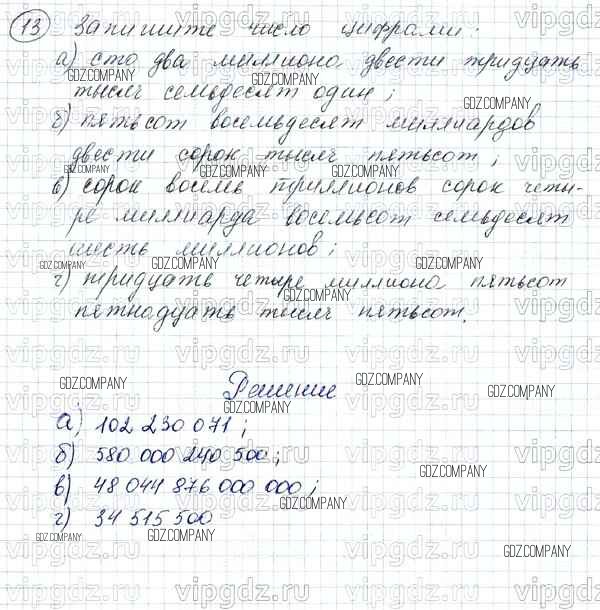 13 Запишите число цифрами:
а) сто два миллиона двести тридцать
тысяч семьдесят один;
б) пятьсот восемьдесят миллиардов
двести сорок тысяч пятьсот;
в) сорок восемь триллионов сорок четы-
ре миллиарда восемьсот семьдесят
шесть миллионов;
г) тридцать четыре миллиона пятьсот
пятнадцать тысяч пятьсот.
Решение
а) 102 230 071;
б) 580 000 240 500;
в) 48 044 876 000 000;
г) 34 515 500
GDZ.COMPANY
vipgdz.ru